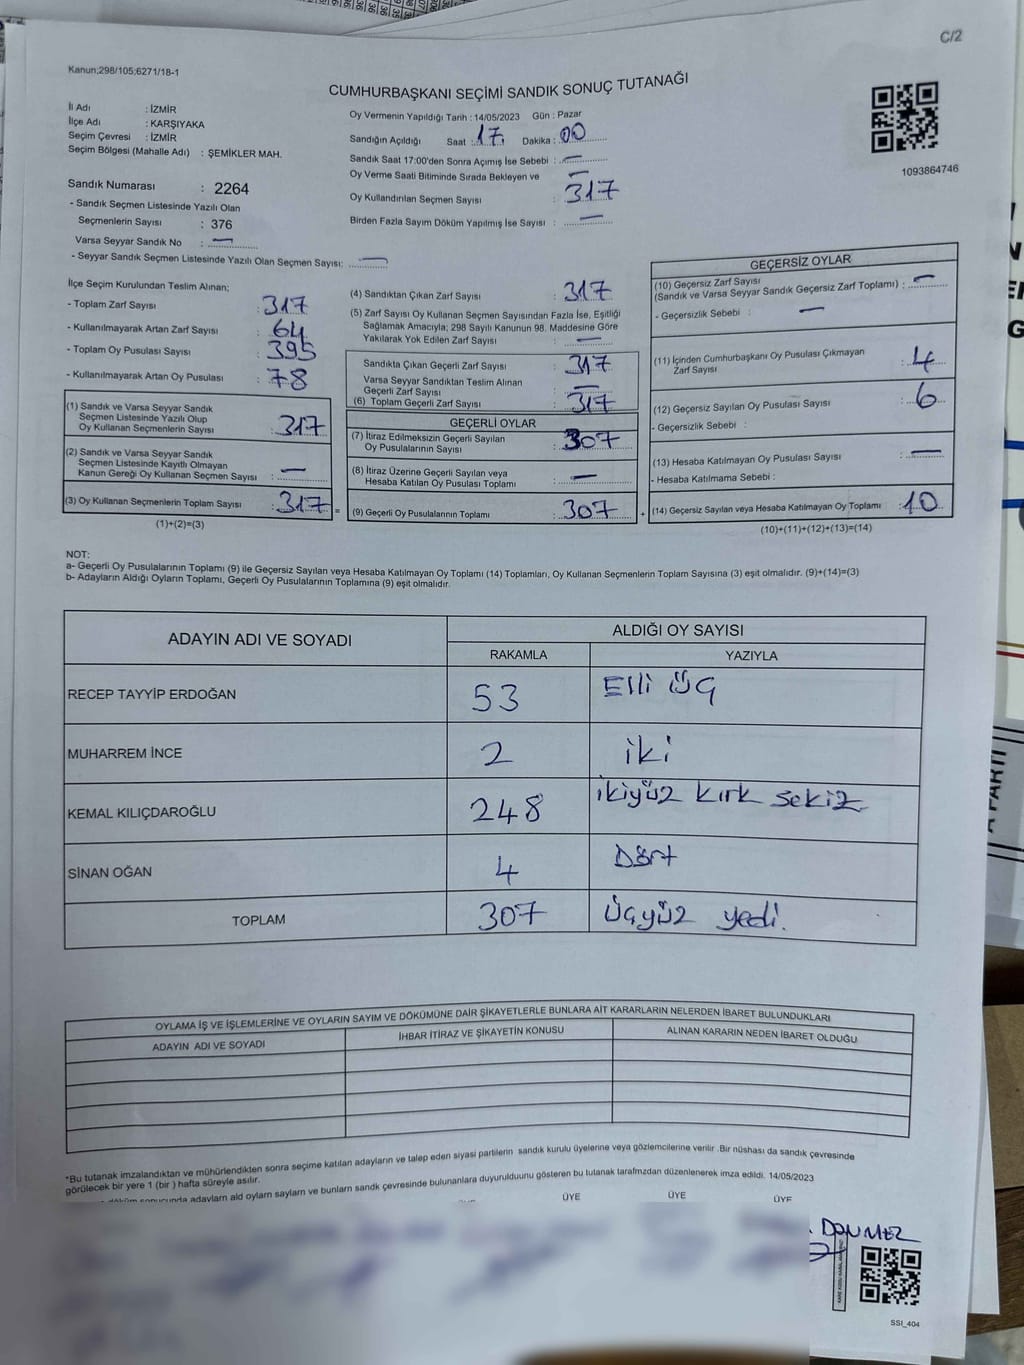 C/2
Kanun;298/105;6271/18-1
CUMHURBAŞKANI SEÇİMİ SANDIK SONUÇ TUTANAĞI
İl Adı : İZMİR
İlçe Adı : KARŞIYAKA
Seçim Çevresi : İZMİR
Seçim Bölgesi (Mahalle Adı) : ŞEMİKLER MAH.
Sandık Numarası : 2264
- Sandık Seçmen Listesinde Yazılı Olan
Seçmenlerin Sayısı : 376
Varsa Seyyar Sandık No : —
- Seyyar Sandık Seçmen Listesinde Yazılı Olan Seçmen Sayısı: —
Oy Vermenin Yapıldığı Tarih : 14/05/2023 Gün : Pazar
Sandığın Açıldığı Saat : 17 Dakika : 00
Sandık Saat 17:00'den Sonra Açımış İse Sebebi : —
Oy Verme Saati Bitiminde Sırada Bekleyen ve —
Oy Kullandırılan Seçmen Sayısı : 317
Birden Fazla Sayım Döküm Yapılmış İse Sayısı : —
1093864746
İlçe Seçim Kurulundan Teslim Alınan;
- Toplam Zarf Sayısı : 317
- Kullanılmayarak Artan Zarf Sayısı : 64
- Toplam Oy Pusulası Sayısı : 395
- Kullanılmayarak Artan Oy Pusulası : 78
(1) Sandık ve Varsa Seyyar Sandık
Seçmen Listesinde Yazılı Olup
Oy Kullanan Seçmenlerin Sayısı : 317
(2) Sandık ve Varsa Seyyar Sandık
Seçmen Listesinde Kayıtlı Olmayan
Kanun Gereği Oy Kullanan Seçmen Sayısı : —
(3) Oy Kullanan Seçmenlerin Toplam Sayısı : 317 =
(1)+(2)=(3)
(4) Sandıktan Çıkan Zarf Sayısı : 317
(5) Zarf Sayısı Oy Kullanan Seçmen Sayısından Fazla İse, Eşitliği
Sağlamak Amacıyla; 298 Sayılı Kanunun 98. Maddesine Göre
Yakılarak Yok Edilen Zarf Sayısı : —
Sandıkta Çıkan Geçerli Zarf Sayısı : 317
Varsa Seyyar Sandıktan Teslim Alınan
Geçerli Zarf Sayısı : —
(6) Toplam Geçerli Zarf Sayısı : 317
GEÇERLİ OYLAR
(7) İtiraz Edilmeksizin Geçerli Sayılan
Oy Pusulalarının Sayısı : 307
(8) İtiraz Üzerine Geçerli Sayılan veya
Hesaba Katılan Oy Pusulası Toplamı : —
(9) Geçerli Oy Pusulalarının Toplamı : 307 +
GEÇERSİZ OYLAR
(10) Geçersiz Zarf Sayısı
(Sandık ve Varsa Seyyar Sandık Geçersiz Zarf Toplamı) : —
- Geçersizlik Sebebi : —
(11) İçinden Cumhurbaşkanı Oy Pusulası Çıkmayan
Zarf Sayısı : 4
(12) Geçersiz Sayılan Oy Pusulası Sayısı : 6
- Geçersizlik Sebebi :
(13) Hesaba Katılmayan Oy Pusulası Sayısı : —
- Hesaba Katılmama Sebebi :
(14) Geçersiz Sayılan veya Hesaba Katılmayan Oy Toplamı : 10
(10)+(11)+(12)+(13)=(14)
NOT:
a- Geçerli Oy Pusulalarının Toplamı (9) ile Geçersiz Sayılan veya Hesaba Katılmayan Oy Toplamı (14) Toplamları, Oy Kullanan Seçmenlerin Toplam Sayısına (3) eşit olmalıdır. (9)+(14)=(3)
b- Adayların Aldığı Oyların Toplamı, Geçerli Oy Pusulalarının Toplamına (9) eşit olmalıdır.
ADAYIN ADI VE SOYADI ALDIĞI OY SAYISI
RAKAMLA YAZIYLA
RECEP TAYYİP ERDOĞAN 53 Elli üç
MUHARREM İNCE 2 iki
KEMAL KILIÇDAROĞLU 248 ikiyüz kırk sekiz
SİNAN OĞAN 4 Dört
TOPLAM 307 üçyüz yedi.
OYLAMA İŞ VE İŞLEMLERİNE VE OYLARIN SAYIM VE DÖKÜMÜNE DAİR ŞİKAYETLERLE BUNLARA AİT KARARLARIN NELERDEN İBARET BULUNDUKLARI
ADAYIN ADI VE SOYADI İHBAR İTİRAZ VE ŞİKAYETİN KONUSU ALINAN KARARIN NEDEN İBARET OLDUĞU
*Bu tutanak imzalandıktan ve mühürlendikten sonra seçime katılan adayların ve talep eden siyasi partilerin sandık kurulu üyelerine veya gözlemcilerine verilir .Bir nüshası da sandık çevresinde
görülecek bir yere 1 (bir ) hafta süreyle asılır.
sonucunda adayların ald oyların sayları ve bunların sandk çevresinde bulunanlara duyurulduunu gösteren bu tutanak tarafmzdan düzenlenerek imza edildi. 14/05/2023
ÜYE ÜYE ÜYE
DÖNMEZ
SSI_404